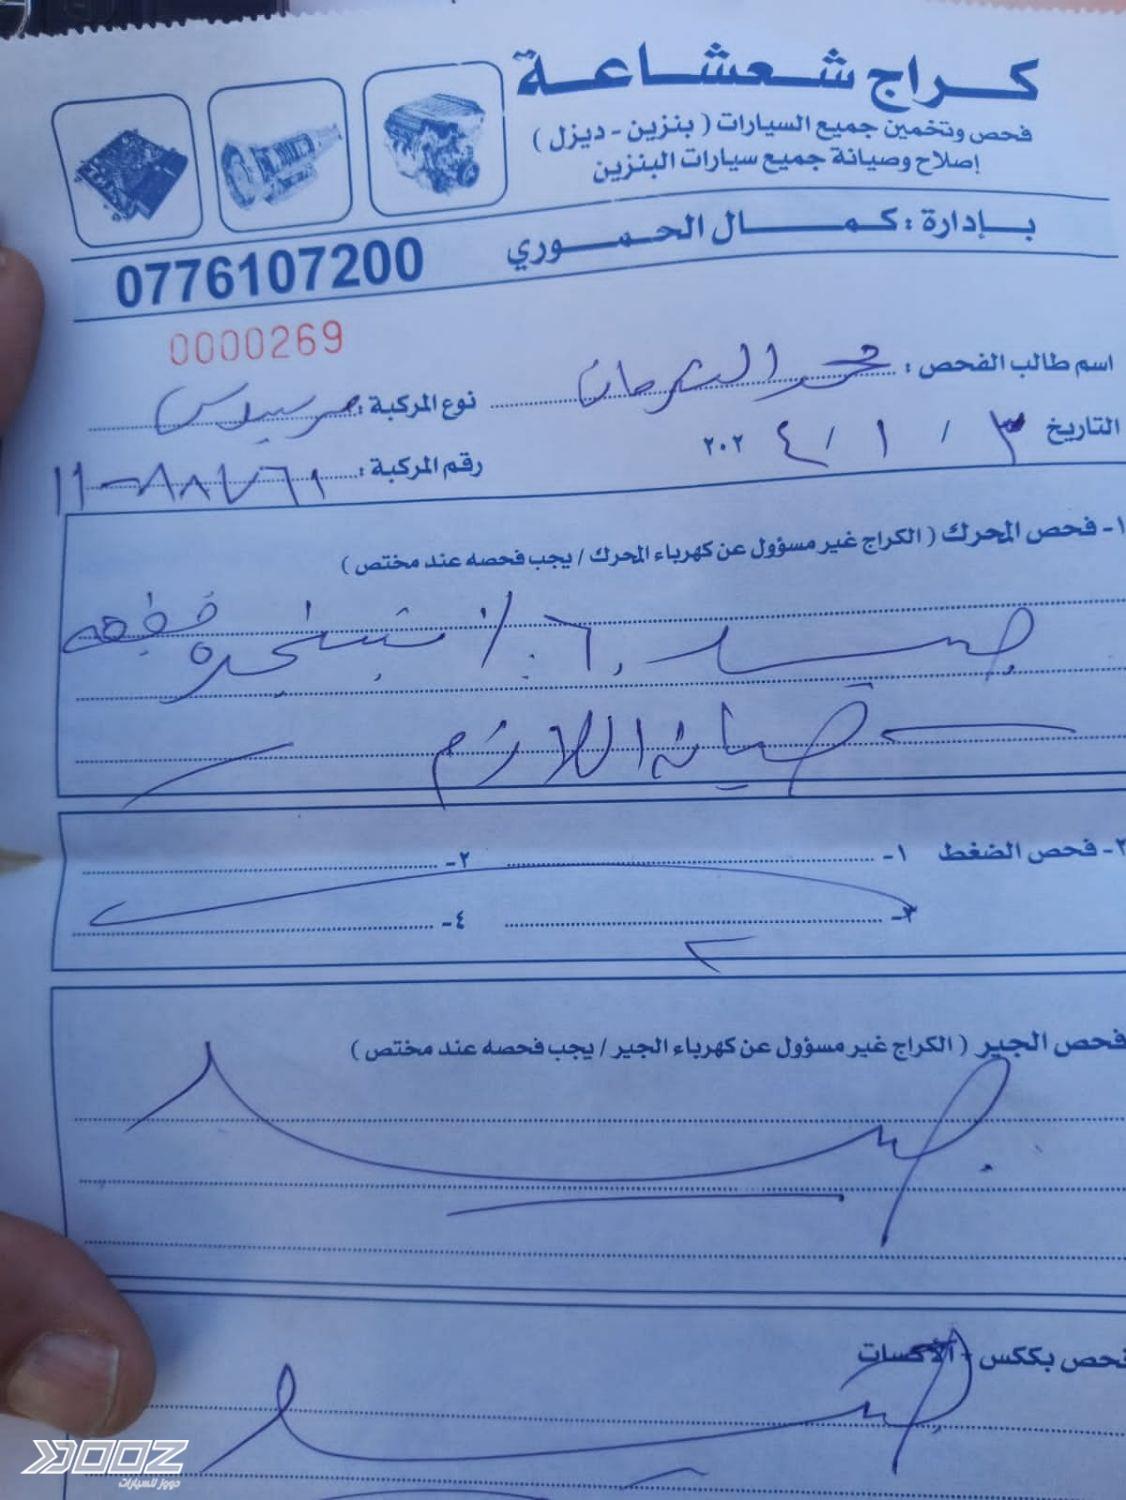 كراج شعشاعة
فحص وتخمين جميع السيارات ( بنزين - ديزل )
إصلاح وصيانة جميع سيارات البنزين
بإدارة : كمال الحموري
0776107200
0000269
اسم طالب الفحص : محمد الشرمان
نوع المركبة : مرسيدس
التاريخ ٣ / ١ / ٢٠٢٤
رقم المركبة :
١- فحص المحرك ( الكراج غير مسؤول عن كهرباء المحرك / يجب فحصه عند مختص )
جيد ٦٠٪
صيانة اللازم
٢- فحص الضغط ١- ٢-
٣- ٤-
فحص الجير ( الكراج غير مسؤول عن كهرباء الجير / يجب فحصه عند مختص )
جيد
فحص بككس - الأكسات
جيد
DOOZ
دووز للسيارات